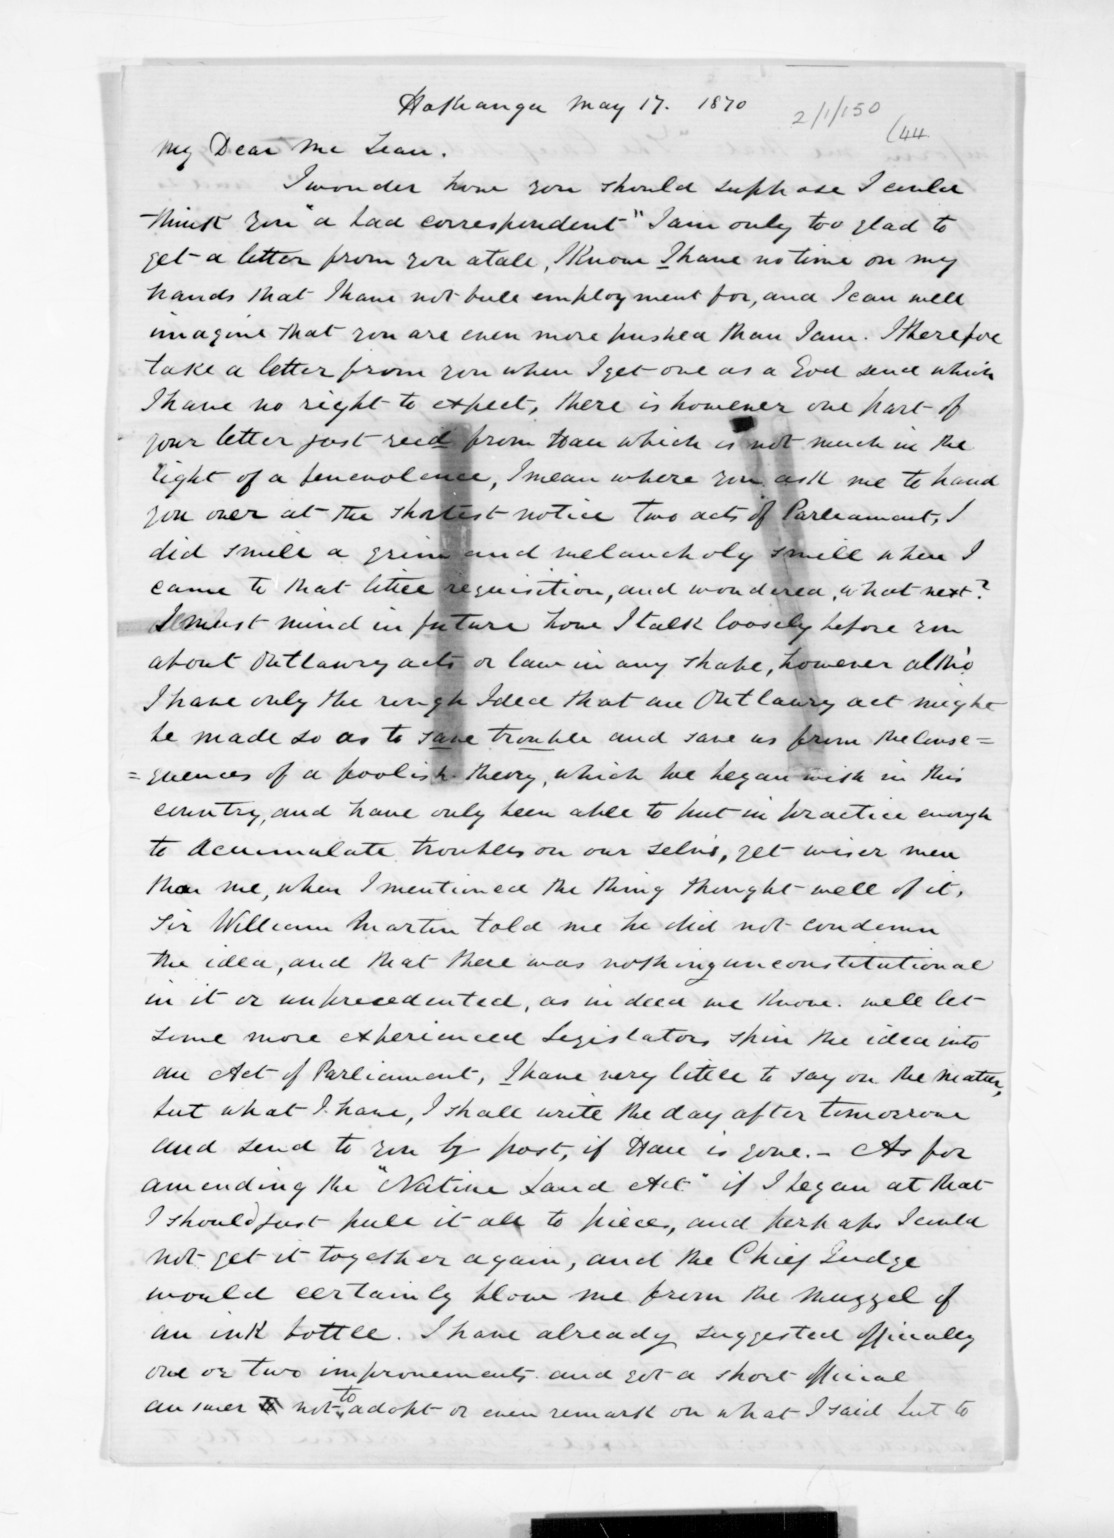 Hokianga May 17. 1870
2/1/150
(44
My Dear Mc Lean.
I wonder how you should suppose I could
think you "a bad correspondent" I am only too glad to
get a letter from you atall, I Know I have no time on my
hands that I have not full employment for, and I can well
imagine that you are even more pushed than I am. I therefore
take a letter from you when I get one as a God send which
I have no right to expect, there is however one part of
your letter just recd from which is not much in the
light of a benevolence, I mean where you ask me to hand
you over at the shortest notice two acts of Parliament, I
did smile a grim and melancholy smile when I
came to that little requisition, and wondered, what next?
I must mind in future how I talk loosely before you
about Outlawry acts or law in any shape, however altho
I have only the rough Idea that an Outlawry act might
be made so as to save trouble and save us from the Conse=
=quences of a foolish theory, which we began with in this
country, and have only been able to put in practice enough
to accumulate troubles on our selvs, yet wiser men
than me, when I mentioned the thing thought well of it.
Sir William Martin told me he did not condemn
the idea, and that there was nothing unconstitutional
in it or unprecedented, as indeed we Know. well let
some more experienced Legislators spin the idea into
an Act of Parliament, I have very little to say on the matter,
but what I have, I shall write the day after tomorrow
and send to you by post, if is gone. - As for
amending the "Native Land Act" if I began at that
I should just pull it all to pieces, and perhaps I could
not get it together again, and the Chief Judge
would certainly blow me from the muzzel of
an ink bottle. I have already suggested officially
one or two improvements and got a short official
answer not to adopt or even remark on what I said but to